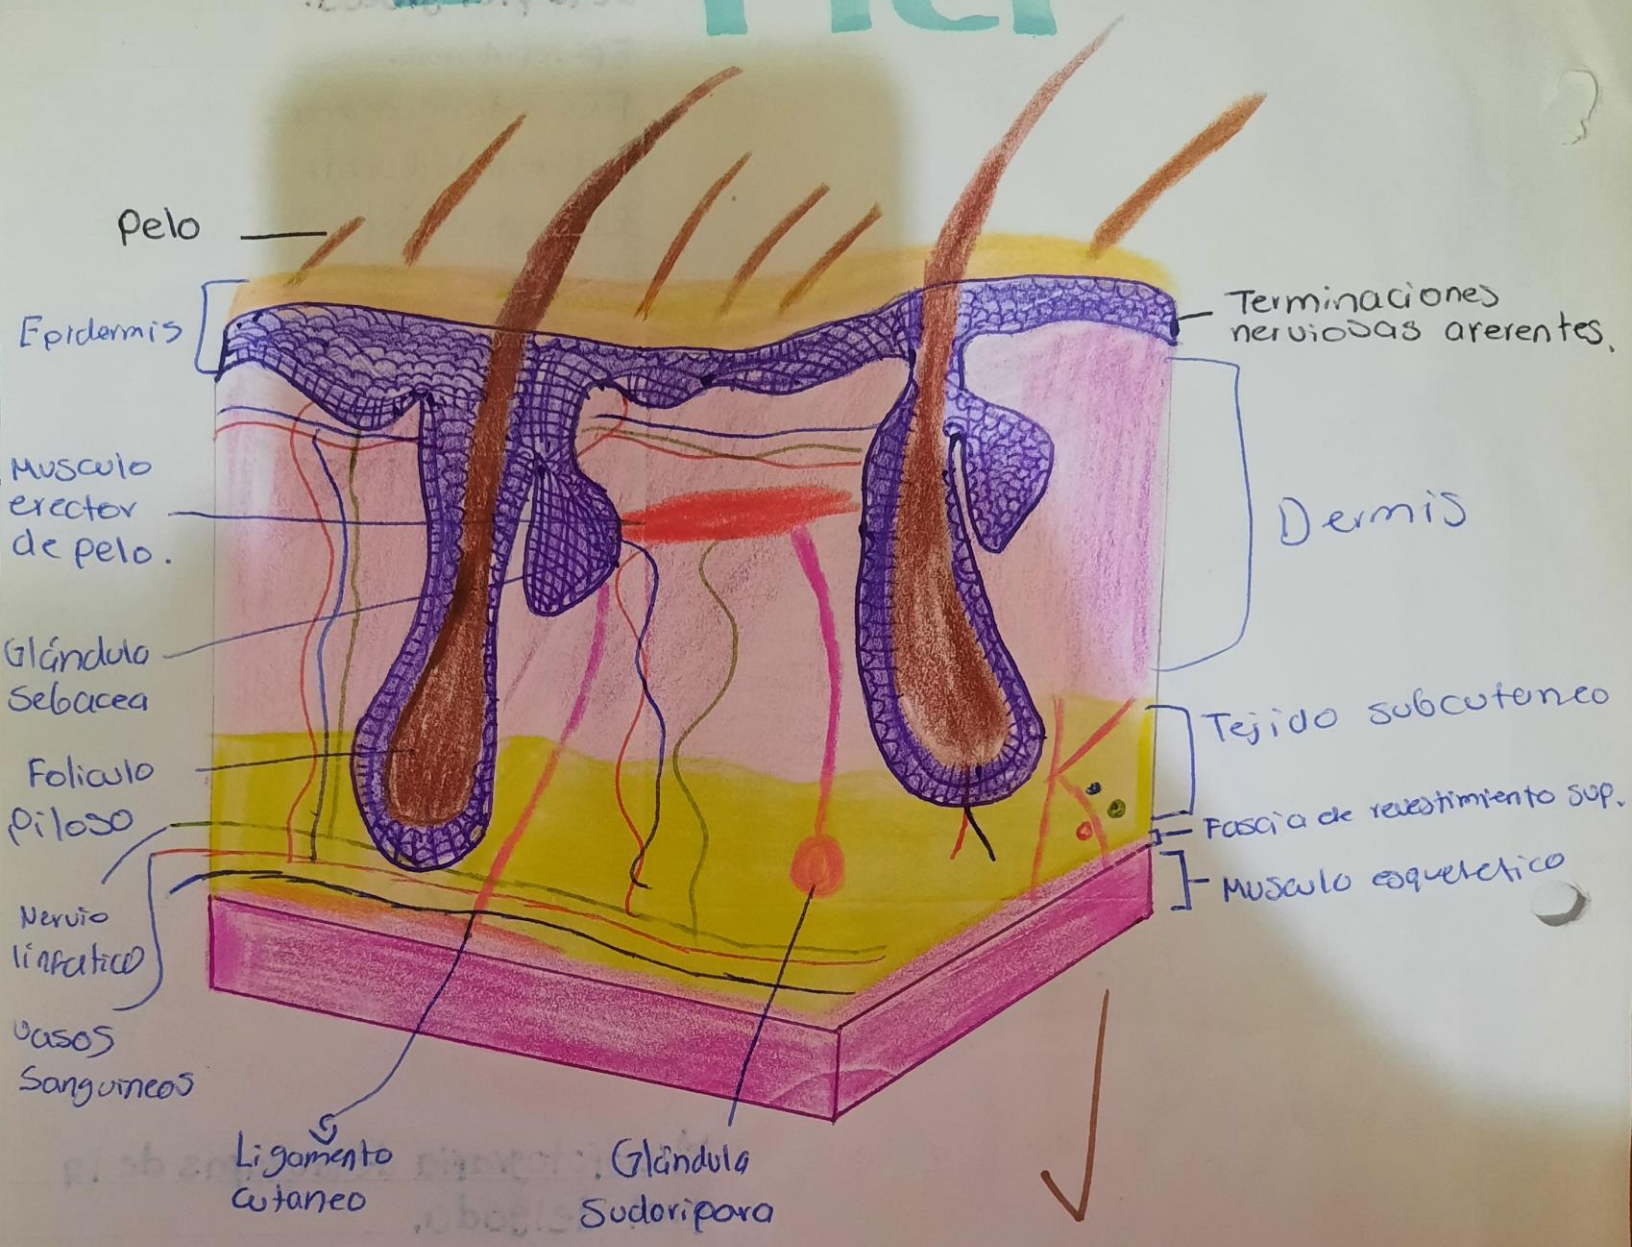 Piel
Pelo
Epidermis
Musculo
erector
de pelo.
Glándula
sebacea
Foliculo
piloso
Nervio
linfatico
vasos
sanguineos
Ligamento
cutaneo
Glándula
Sudoripara
Terminaciones
nerviosas aferentes.
Dermis
Tejido subcutaneo
Fascia de revestimiento sup.
Musculo esqueletico